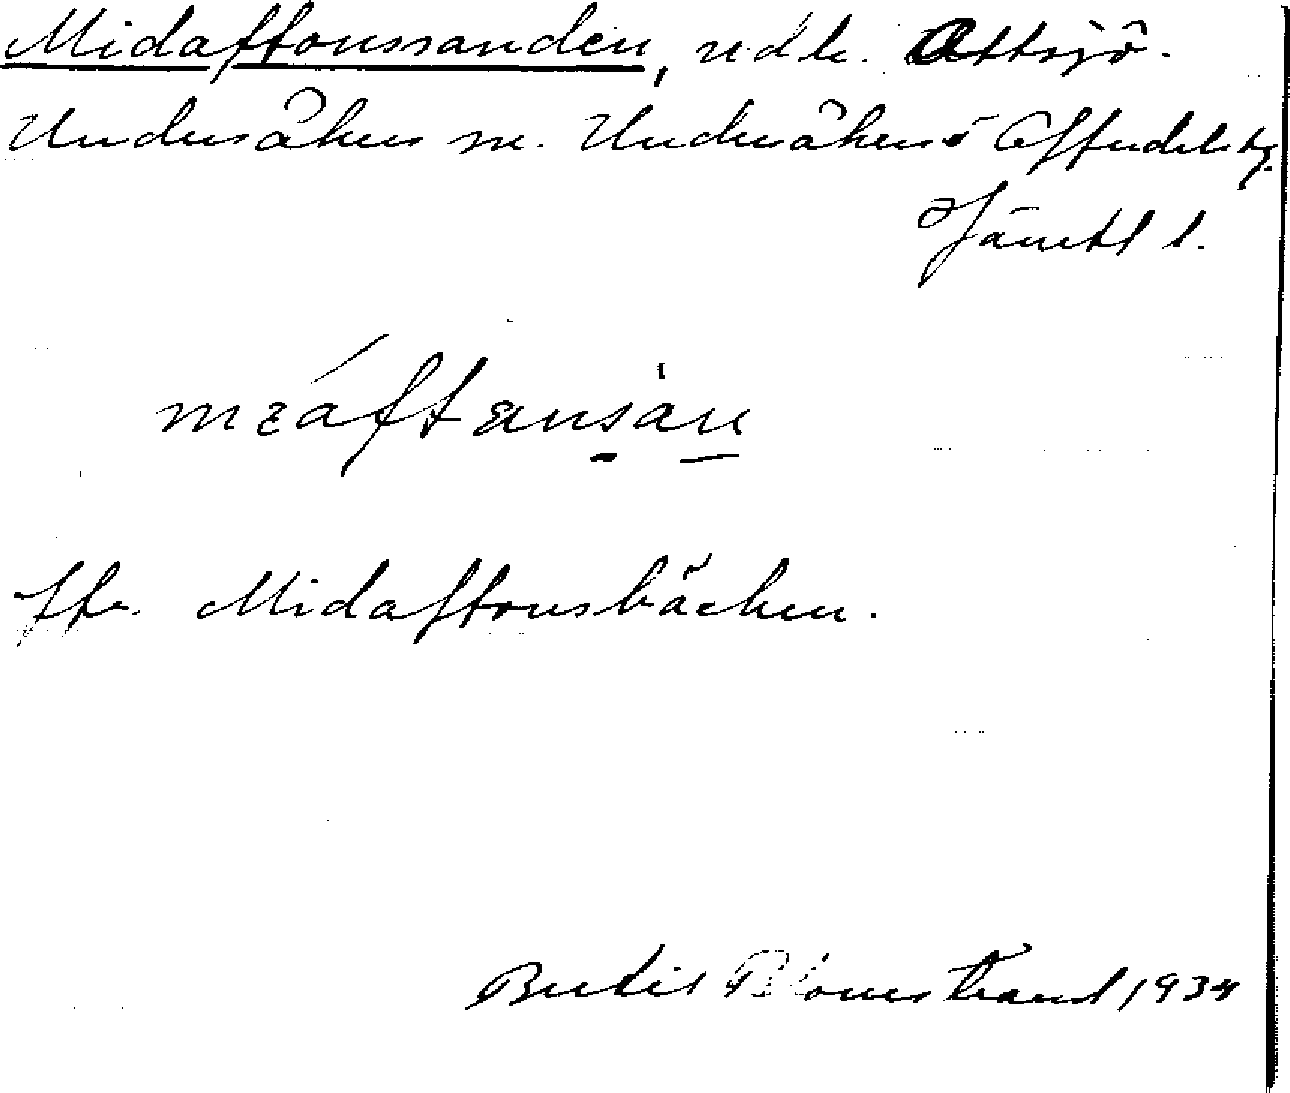 Midaftonssanden, udde. Ottsjö.
Undersåkers sn. Undersåkers o Offerdals tg.
Jämtl l.
mεáftansàn
Jfr. Midaftonsbäcken.
Bertil Blomstrand 1934